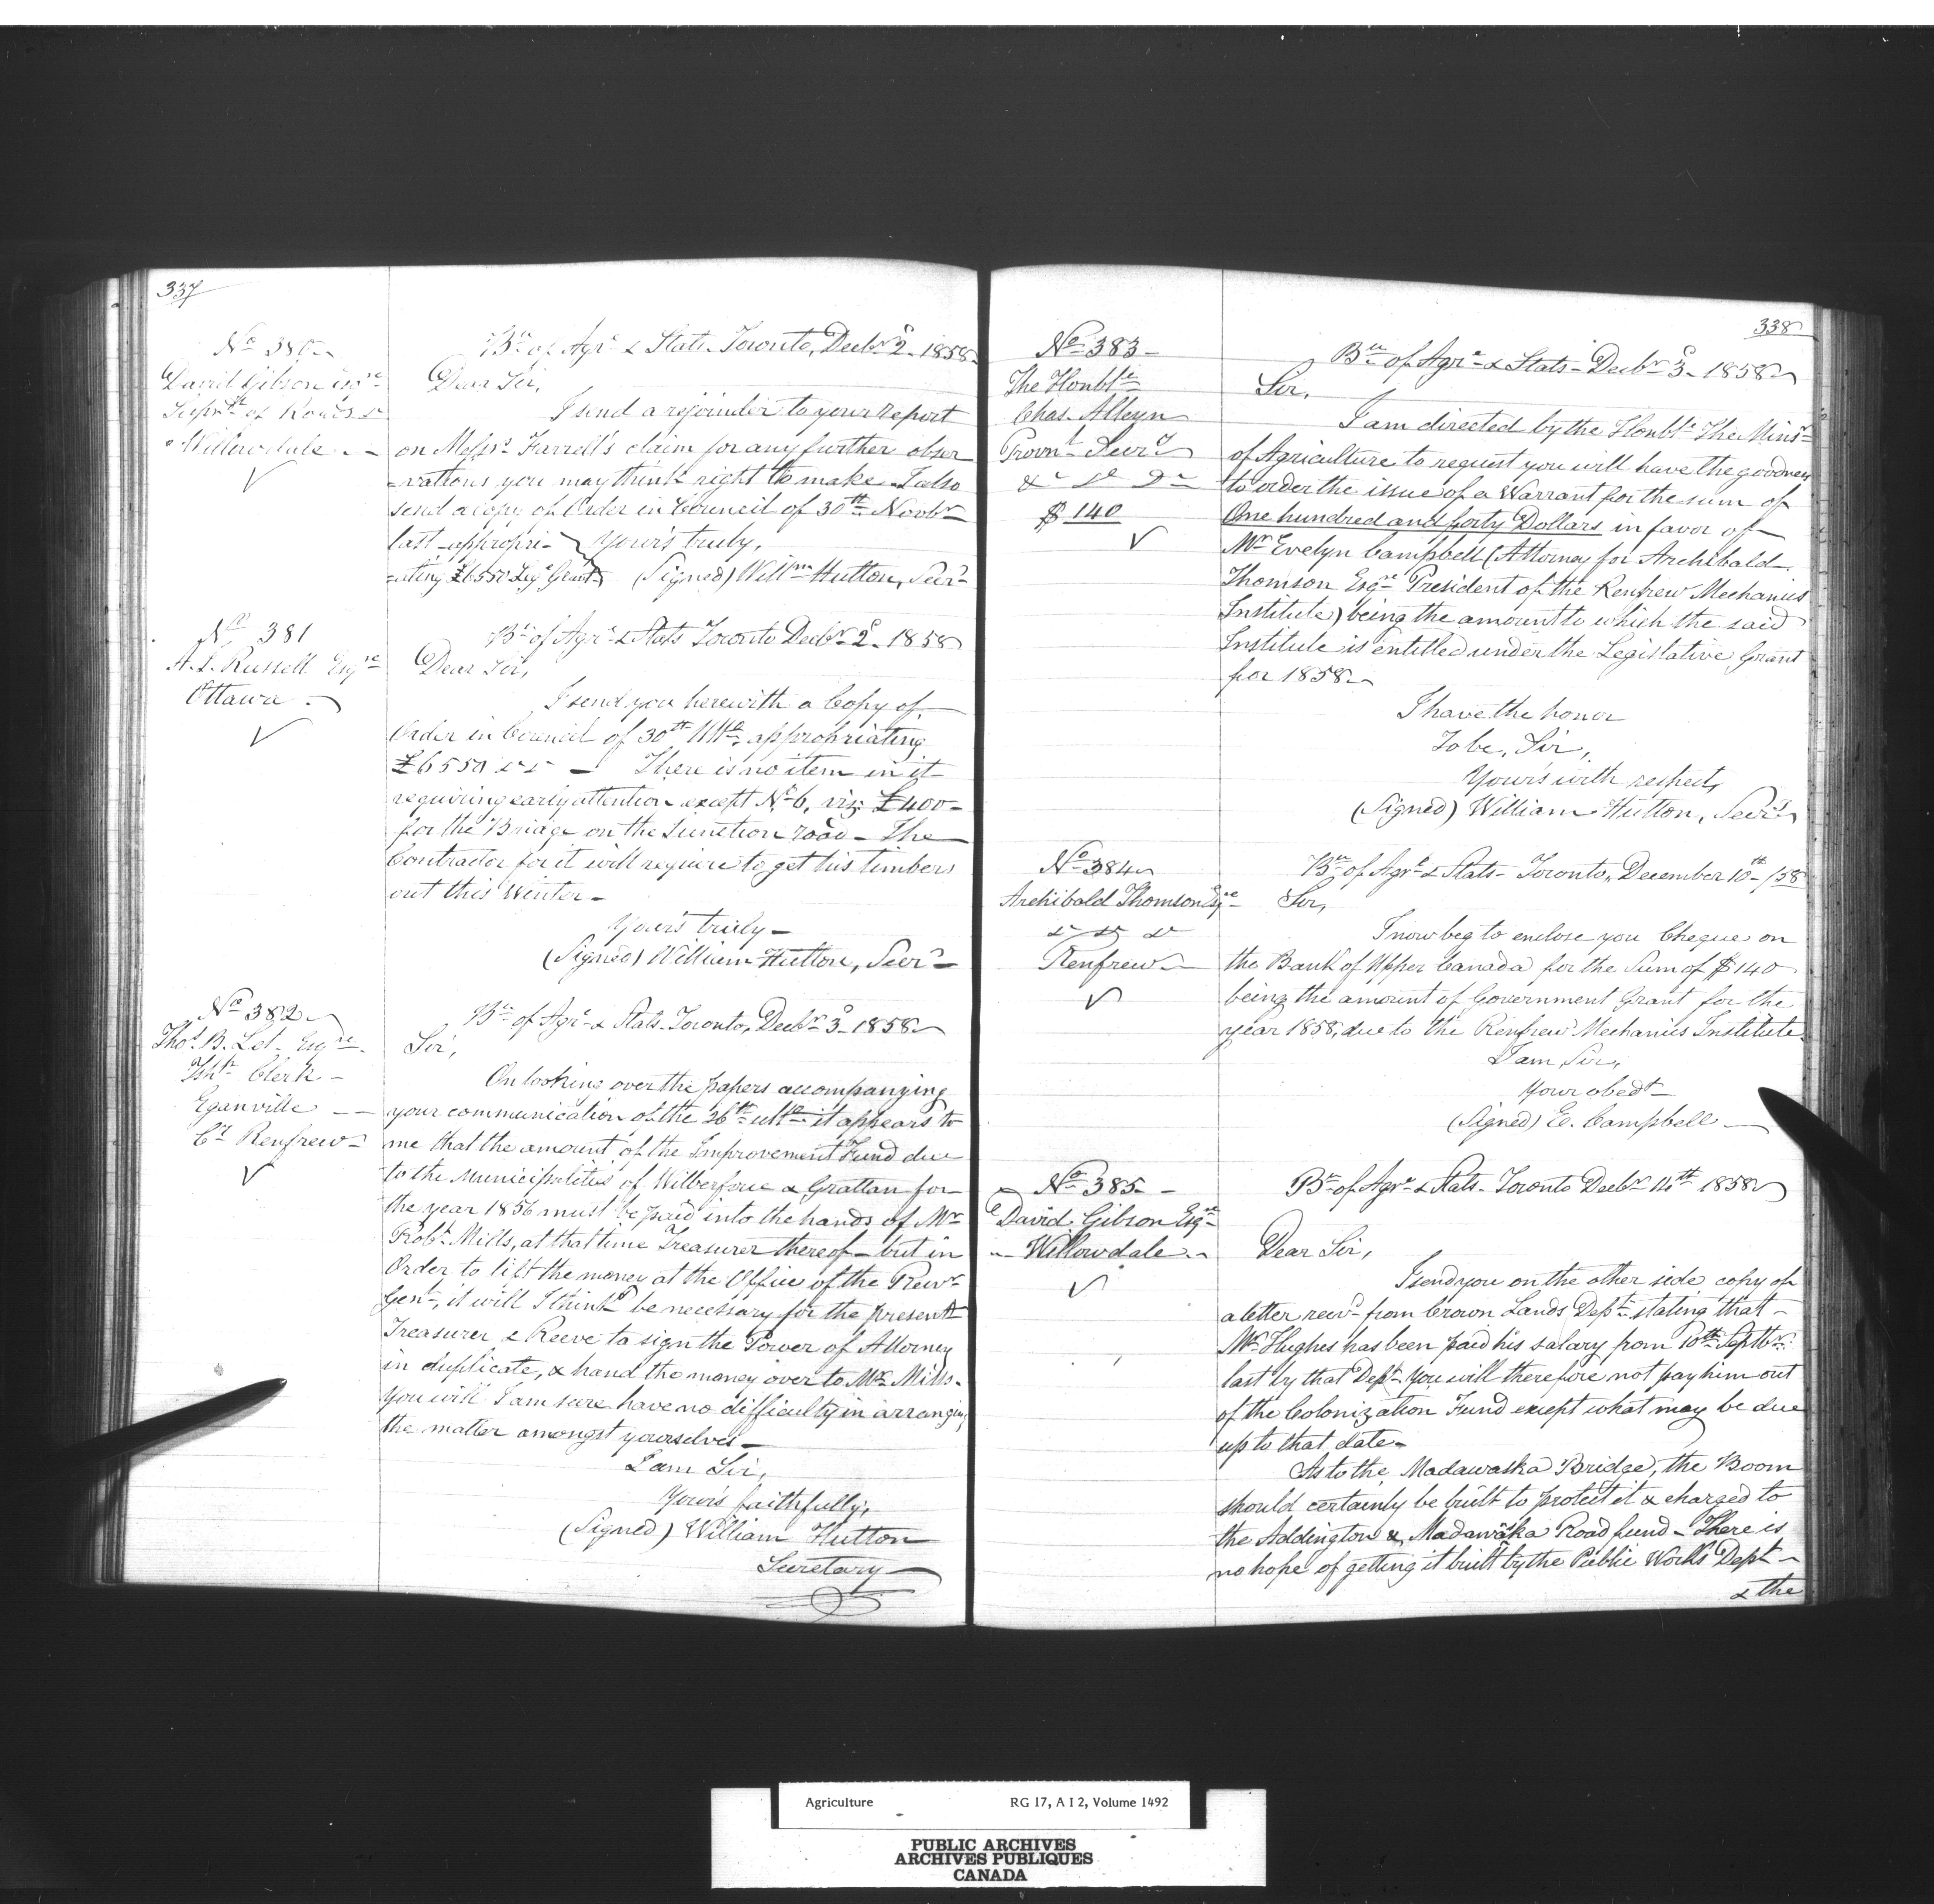 337
No 380
David Gibson Esqre
Supnt of Roads &c
Willowdale
Bu of Agre & Stats Toronto, Decbr 2d 1858
Dear Sir,
I send a rejoinder to your report
on Messrs Farrell's claim for any further obser
-vations you may think right to make. I also
send a copy of Order in Council of 30th Novbr
last appropri-
-ating £6550 Lege Grant
Yours truly,
(Signed) Willm Hutton, Secy
No 381
A. J. Russell Esqre
Ottawa
Bu of Agre & Stats Toronto Decbr 2d 1858
Dear Sir,
I send you herewith a Copy of
Order in Council of 30th Ulto, appropriating
£6550 &c &c — There is no item in it
requiring early attention except No 6, viz: £400
for the Bridge on the Junction road — The
Contractor for it will require to get his timbers
out this Winter —
Yours truly —
(Signed) William Hutton, Secy
No 382
Thos B. Let Esqre
Tshp Clerk
Eganville
Co Renfrew
Bu of Agre & Stats. Toronto, Decbr 3d 1858
Sir,
On looking over the papers accompanying
your communication of the 26th ulto it appears to
me that the amount of the Improvement Fund due
to the Municipalities of Wilberforce & Grattan for
the year 1856 must be paid into the hands of Mr
Robt Mills, at that time Treasurer thereof — but in
Order to lift the money at the Office of the Recr
Genl, it will I think be necessary for the present
Treasurer & Reeve to sign the Power of Attorney
in duplicate, & hand the money over to Mr Mills.
You will I am sure have no difficulty in arranging
the matter amongst yourselves —
I am Sir,
Yours faithfully,
(Signed) William Hutton
Secretary
338
No 383
The Honble
Chas. Alleyn
Provnl Secry
&c &c &c
$140
Bu of Agre & Stats — Decbr 3d 1858
Sir,
I am directed by the Honble The Minr
of Agriculture to request you will have the goodness
to order the issue of a Warrant for the sum of
One hundred and forty Dollars in favor of
Mr Evelyn Campbell (Attorney for Archibald
Thomson Esqre President of the Renfrew Mechanics
Institute) being the amount to which the said
Institute is entitled under the Legislative Grant
for 1858
I have the honor
To be, Sir,
Yours with respect,
(Signed) William Hutton, Secy
No 384
Archibald Thomson Esqre
&c &c &c
Renfrew
Bu of Agre & Stats — Toronto, December 10th /58
Sir,
I now beg to enclose you Cheque on
the Bank of Upper Canada for the Sum of $140
being the amount of Government Grant for the
year 1858, due to the Renfrew Mechanics Institute
I am Sir,
Your obedt
(Signed) Ev. Campbell
No 385
David Gibson Esqre
Willowdale
Bu of Agre & Stats — Toronto Decbr 14th 1858
Dear Sir,
I send you on the other side copy of
a letter recd from Crown Lands Dept stating that
Mr Hughes has been paid his salary from 10th Septbr
last by that Dept. You will therefore not pay him out
of the Colonization Fund except what may be due
up to that date —
As to the Madawaska Bridge, the Boom
should certainly be built to protect it & charged to
the Addington & Madawaska Road fund — There is
no hope of getting it built by the Public Works Dept —
& the
Agriculture RG 17, A I 2, Volume 1492
PUBLIC ARCHIVES
ARCHIVES PUBLIQUES
CANADA